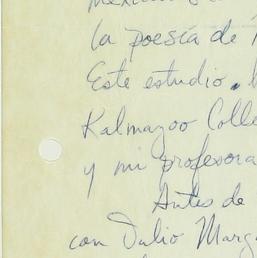 la poesía de
Este estudio,
Kalmazoo Colle
y mi profesora
Antes de
con Julio Marg